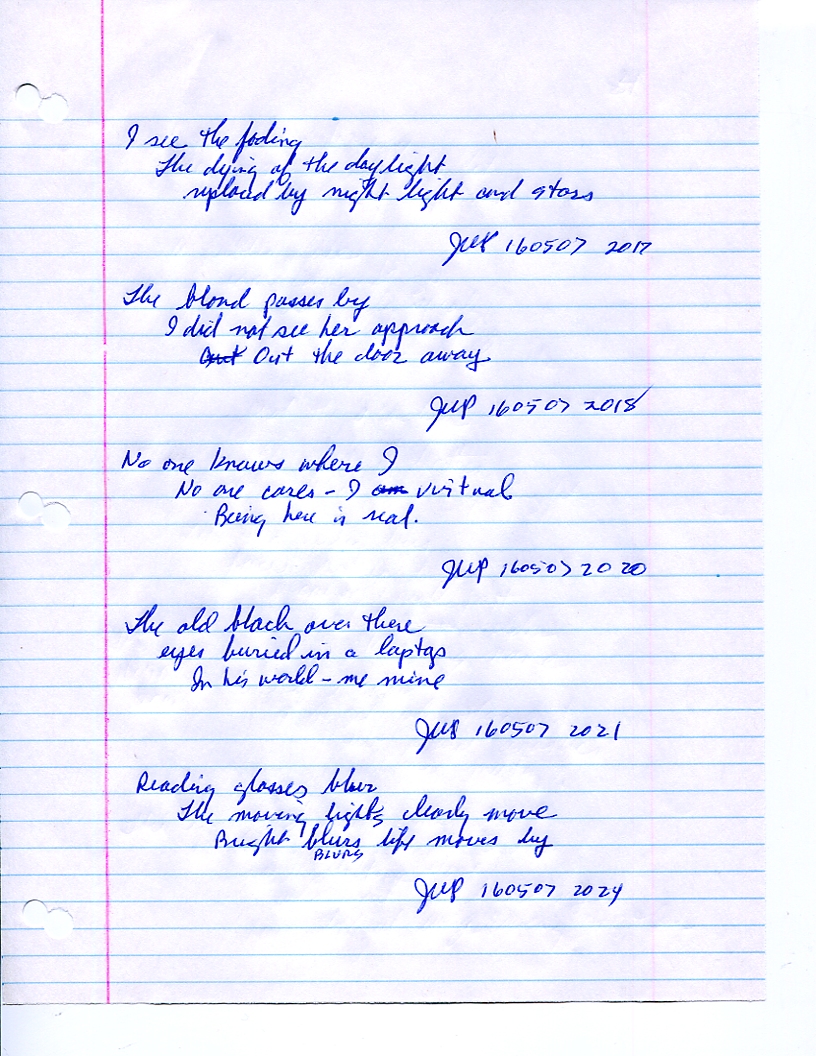 I see the fading
The dying of the daylight
replaced by night light and stars
JWP 160507 2017
The blond passes by
I did not see her approach
Out the door away
JWP 160507 2018
No one knows where I
No one cares - I am virtual
Being here is real.
JWP 160507 2020
The old black over there
eyes buried in a laptop
In his world - me mine
JWP 160507 2021
Reading glasses blur
The moving lights clearly move
Bright blurs life moves by
BLURS
JWP 160507 2024